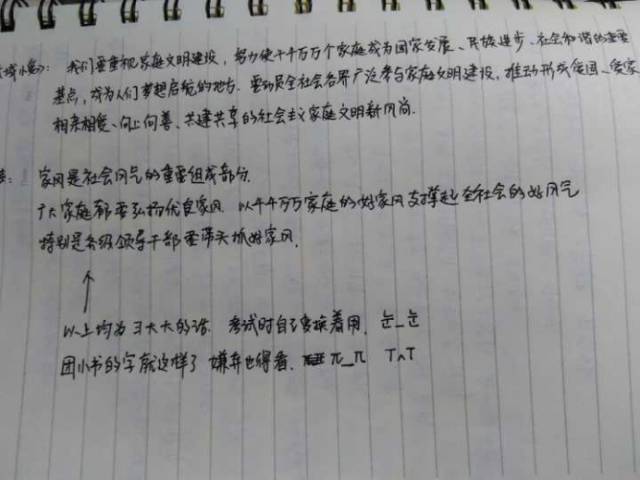 我们要重视家庭文明建设，努力使千千万万个家庭成为国家发展、民族进步、社会和谐的重要
基点，成为人们梦想启航的地方. 要动员全社会各界广泛参与家庭文明建设，推动形成爱国、爱家
相亲相爱、向上向善、共建共享的社会主义家庭文明新风尚.
家风是社会风气的重要组成部分.
广大家庭都要弘扬优良家风. 以千千万万家庭的好家风支撑起全社会的好风气
特别是各级领导干部要带头抓好家风.
以上均为习大大的话. 考试时自己变换着用. 눈_눈
团小书的字就这样了 嫌弃也得看. π_π TヘT